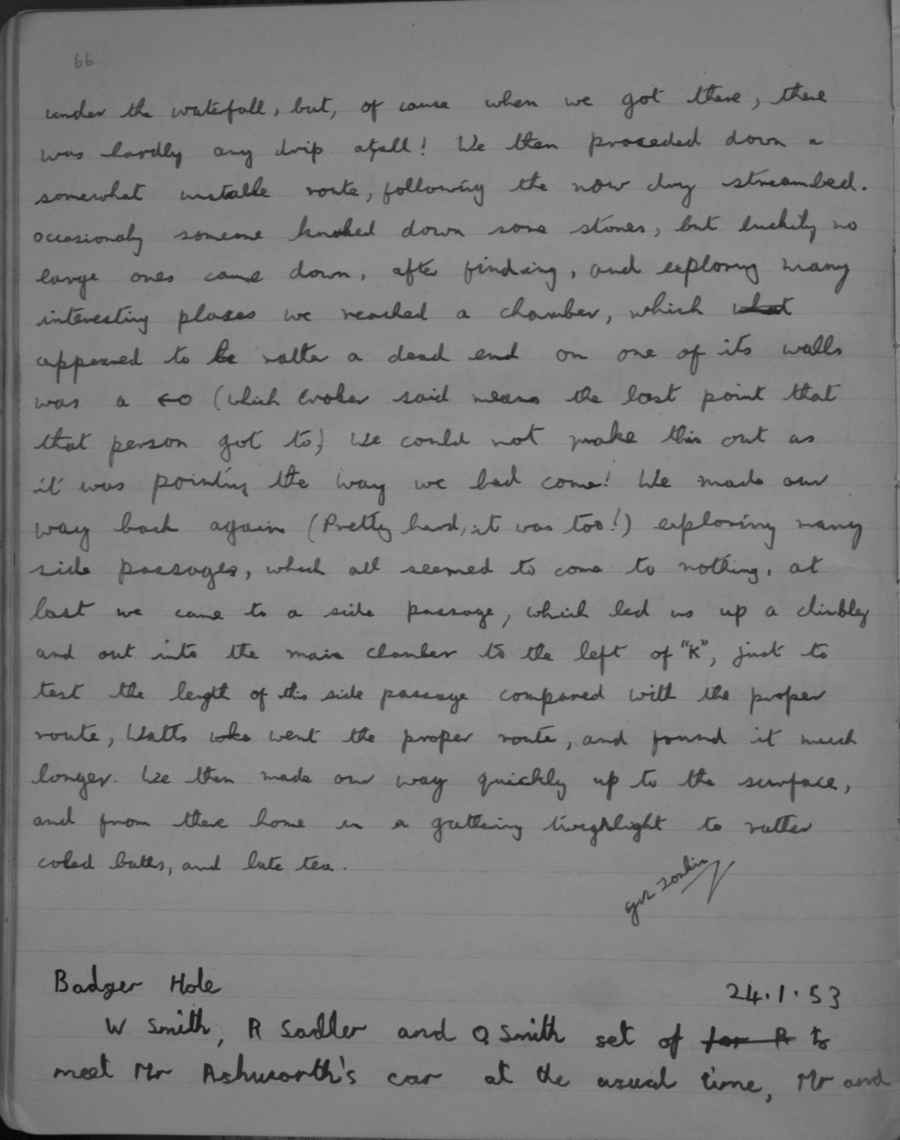 66
under the waterfall, but, of cause when we got there, there
was hardly any drip atall! We then proceded down a
somewhat unstable route, following the now dry streambed.
occasionaly someone knoked down some stones, but luckily no
large ones came down, after finding, and exploring many
interesting places we reached a chamber, which what
appeared to be rather a dead end on one of its walls
was a ←o (which Croker said means the last point that
that person got to) We could not make this out as
it was pointing the way we had come! We made our
way back again (Pretty hard, it was too!) exploring many
side passages, which all seemed to come to nothing, at
last we came to a side passage, which led us up a climbley
and out into the main chamber to the left of "K", just to
test the length of this side passage compared with the proper
route, Watts who went the proper route, and found it much
longer. We then made our way quickly up to the surface,
and from there home in a gathering twighlight to rather
coled baths, and late tea.
Badger Hole 24.1.53
W Smith, R Sadler and Q Smith set of for R to
meet Mr Ashworth's car at the usual time, Mr and